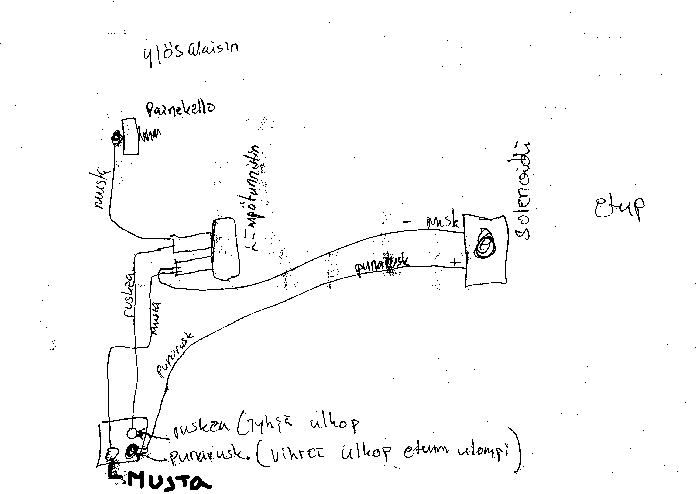 ylösalaisin
Painekello
musk
Solenoidi
etup
- musk
+
punarusk
ruskea
musta
punrusk
ruskea (tyhjä ulkop
punarusk. (vihreä ulkop etum ulompi)
MUSTA